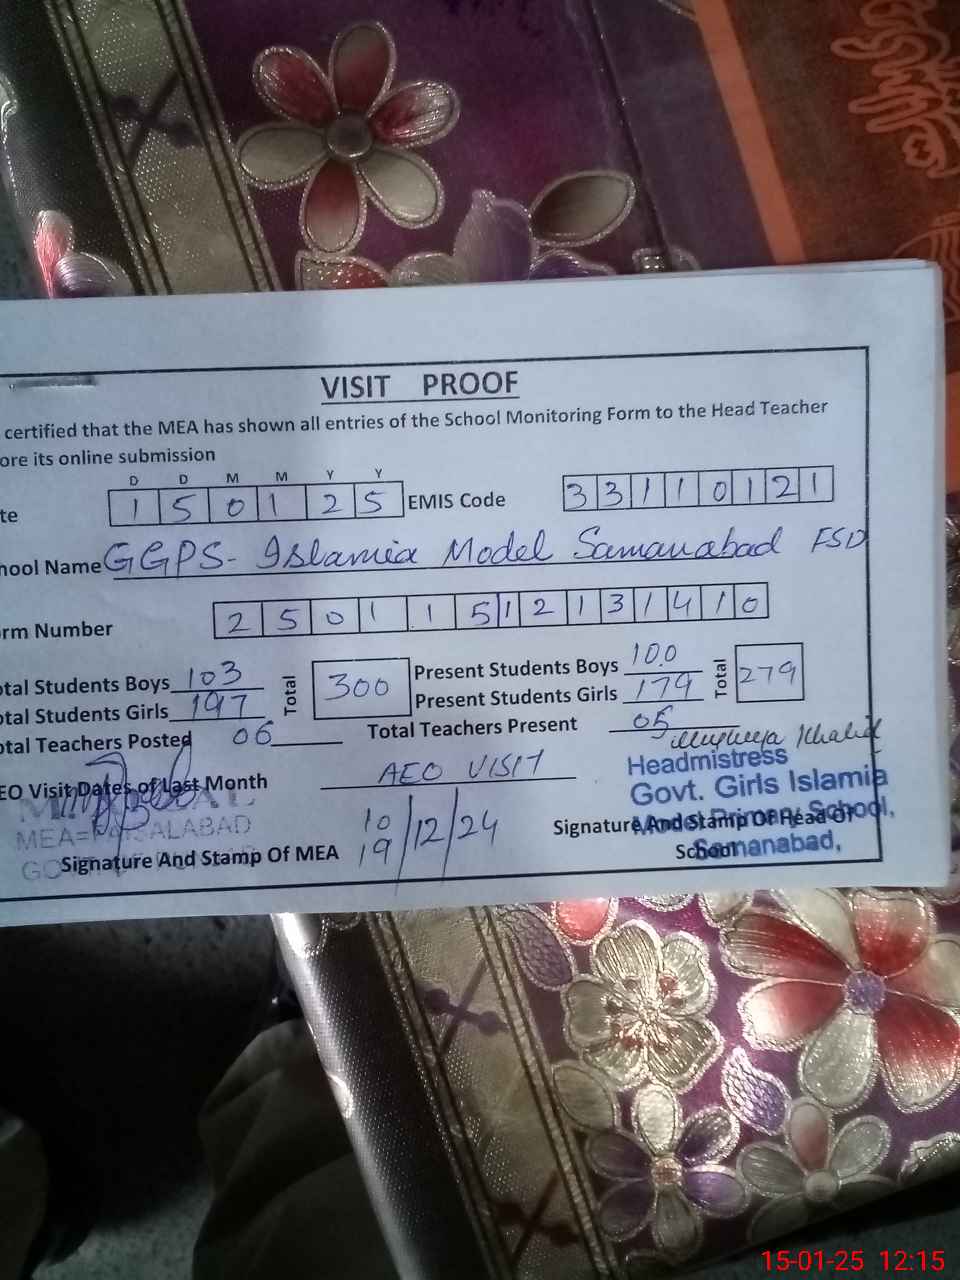 VISIT PROOF
certified that the MEA has shown all entries of the School Monitoring Form to the Head Teacher
ore its online submission
D D M M Y Y
te 1 5 0 1 2 5 EMIS Code 3 3 1 1 0 1 2 1
hool Name GGPS- Islamia Model Samanabad FSD
rm Number 2 5 0 1 1 5 1 2 1 3 1 4 1 0
otal Students Boys 103 Total 300 Present Students Boys 100 Total 279
otal Students Girls 197 Present Students Girls 179
otal Teachers Posted 06 Total Teachers Present 05
Khalid
EO Visit Dates of Last Month AEO VISIT
10
19/12/24
MEA=FAISALABAD
Signature And Stamp Of MEA
Headmistress
Govt. Girls Islamia
Model Primary School,
Samanabad,
Signature And Stamp Of Head Of
School
15-01-25 12:15